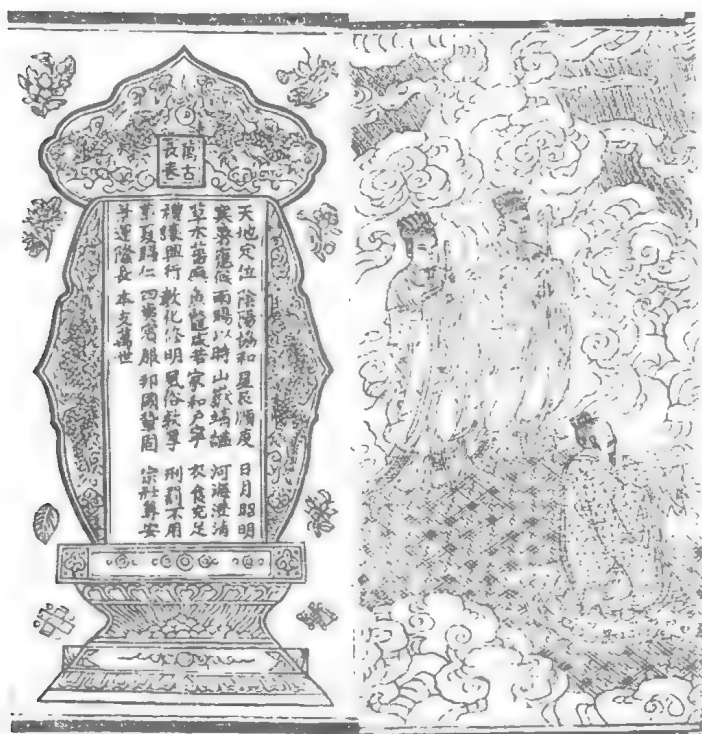 萬古
長春
天地定位 陰陽協和 星辰順度 日月昭明
寒暑應候 雨暘以時 山嶽靖謐 河海澄清
草木蕃廡 魚龍咸若 家和戶寧 衣食充足
禮讓興行 教化修明 風俗敦厚 刑罰不用
華夏歸仁 四夷賓服 邦國鞏固 宗社尊安
運隆長 本支萬世